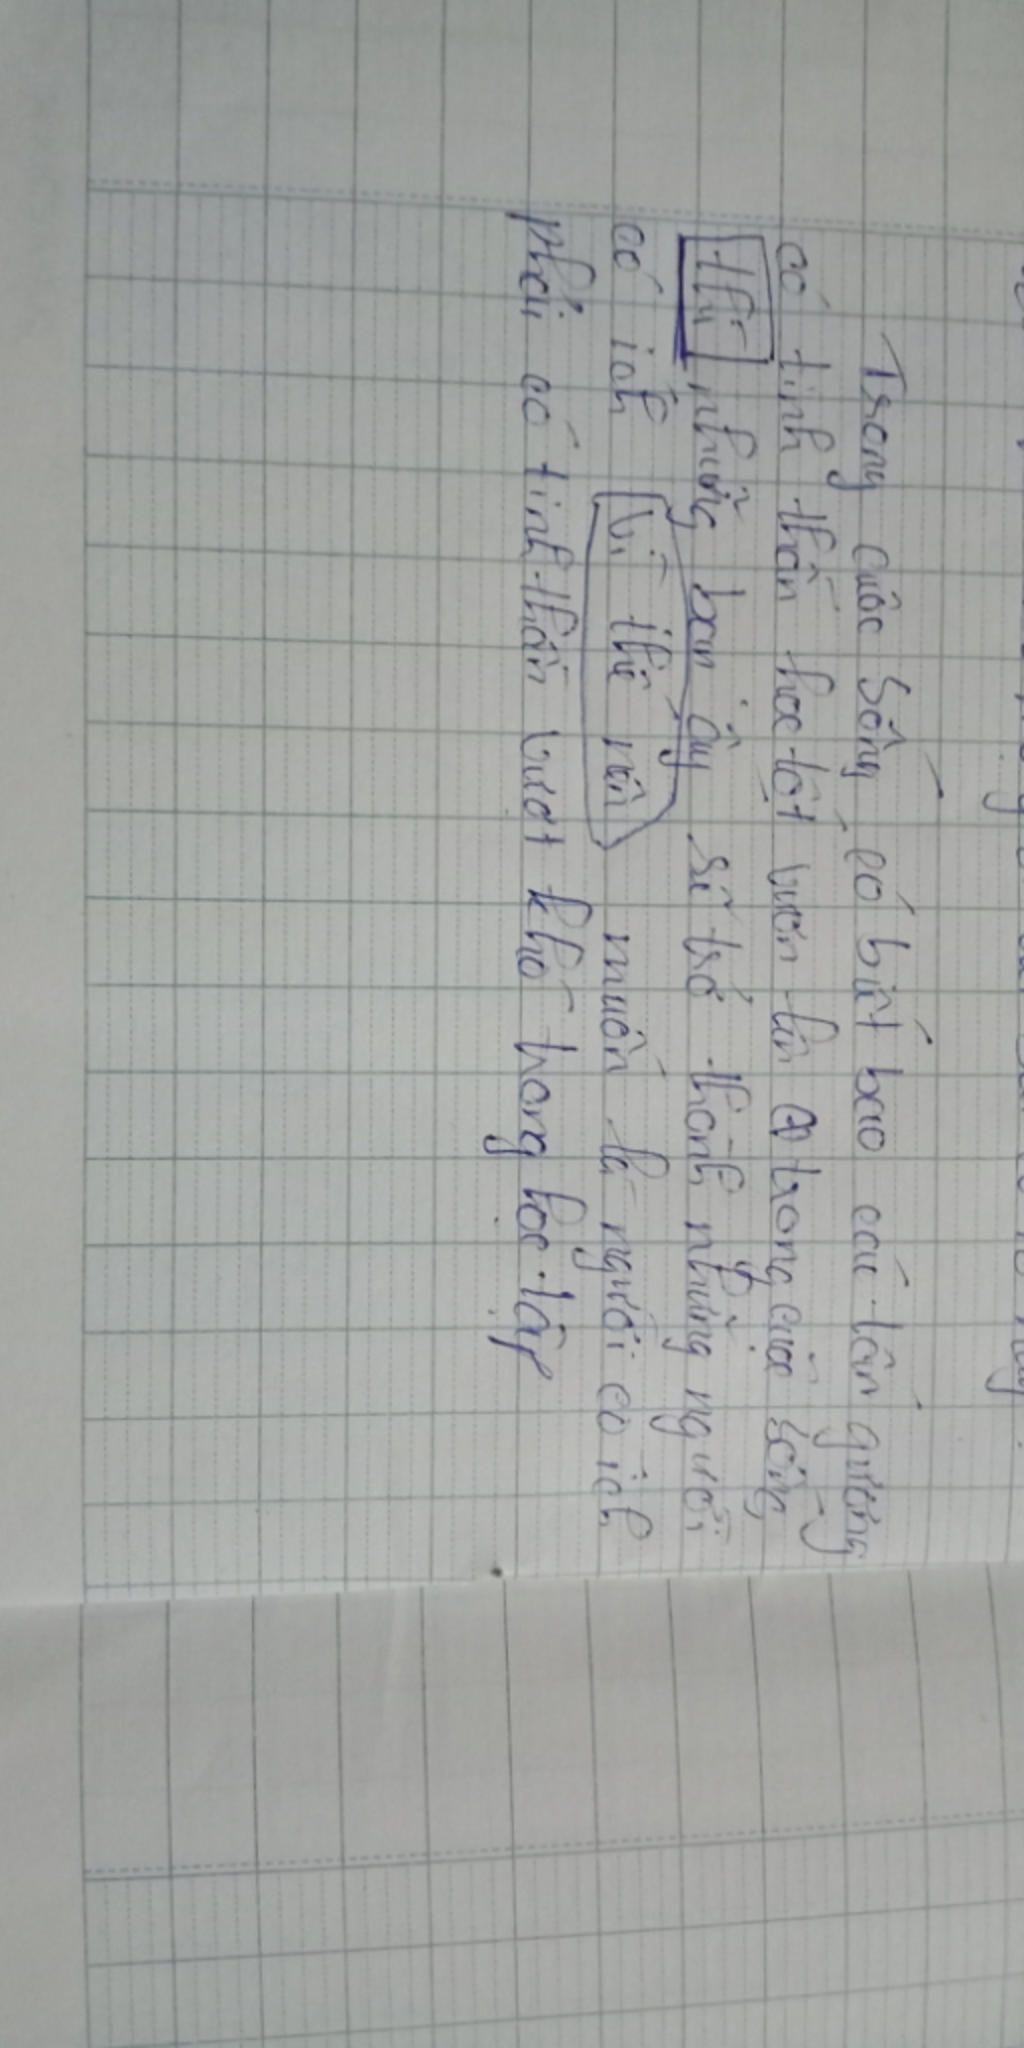 Trong cuộc sống có biết bao các tấn gương
có tinh thần học tốt vươn lên trong cuộc sống
thì những bạn ấy sẽ trở thành những người
có ích vì thế nên muốn là người có ích
phải có tinh thần vượt khó trong học tập